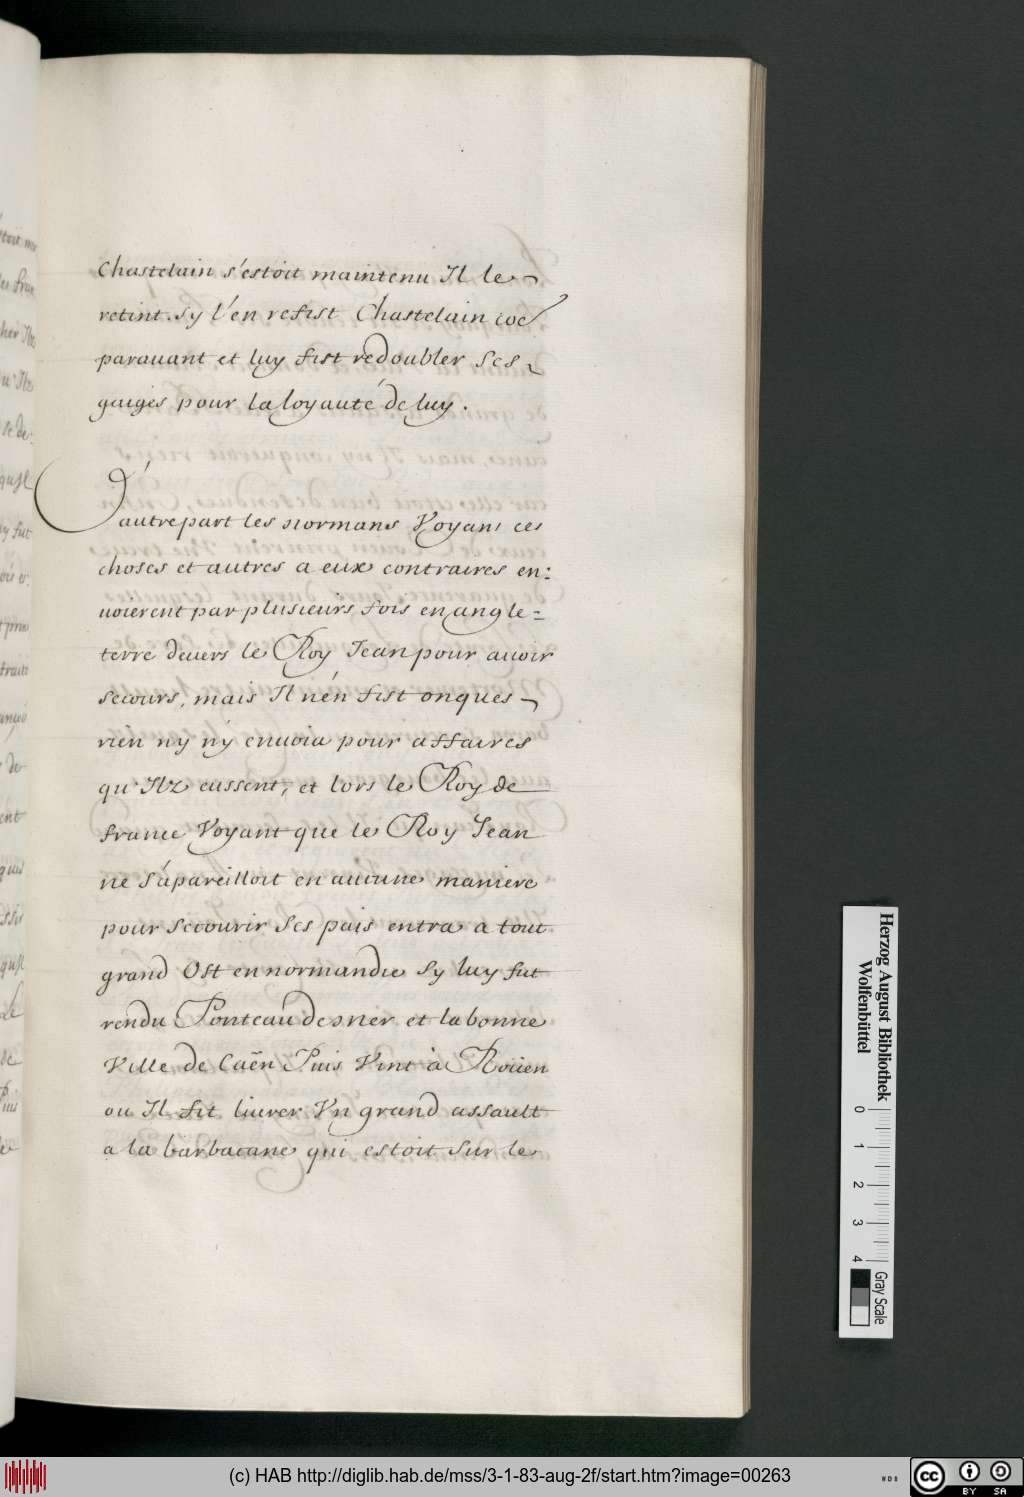 Chastelain s'estoit maintenu Il le
retint. Sy l'en refist Chastelain
parauant et luy fist redoubler ses
gaiges pour la loyauté de luy.
D'autrepart les normans Voyans ces
choses et autres a eux contraires en:
uoierent par plusieurs fois en angle=
terre deuers le Roy Jean pour auoir
secours, mais Il n'en fist onques
rien ny n'y enuoia pour affaires
qu'Ilz eussent, et lors le Roy de
france Voyant que le Roy Jean
ne s'apareilloit en aucune maniere
pour secourir ses pais entra a tout
grand Ost en normandie sy luy fut
rendu Ponteaudesmer et la bonne
Ville de Caën Puis Vint à Roüen
ou Il fit liurer Vn grand assault
a la barbacane qui estoit sur le
Herzog August Bibliothek
Wolfenbüttel
0 1 2 3 4
Gray Scale
(c) HAB http://diglib.hab.de/mss/3-1-83-aug-2f/start.htm?image=00263
WDB
cc BY SA